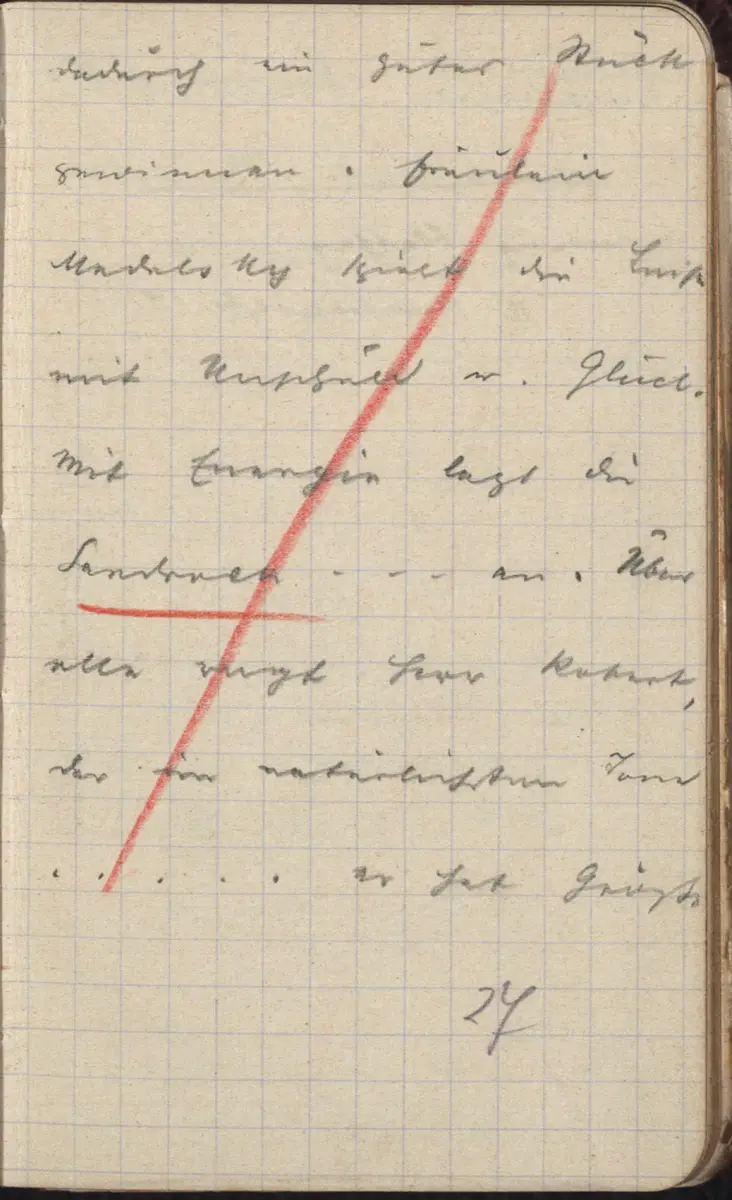 dadurch ein guter Stück
gewinnen. Fräulein
Medelsky spielt die Luise
mit Unschuld u. Glück.
Mit Energie legt die
Sandrock - - - an. Über
alle ragt Herr Robert,
der im natürlichsten Tone
. . . . . er hat Größe
27